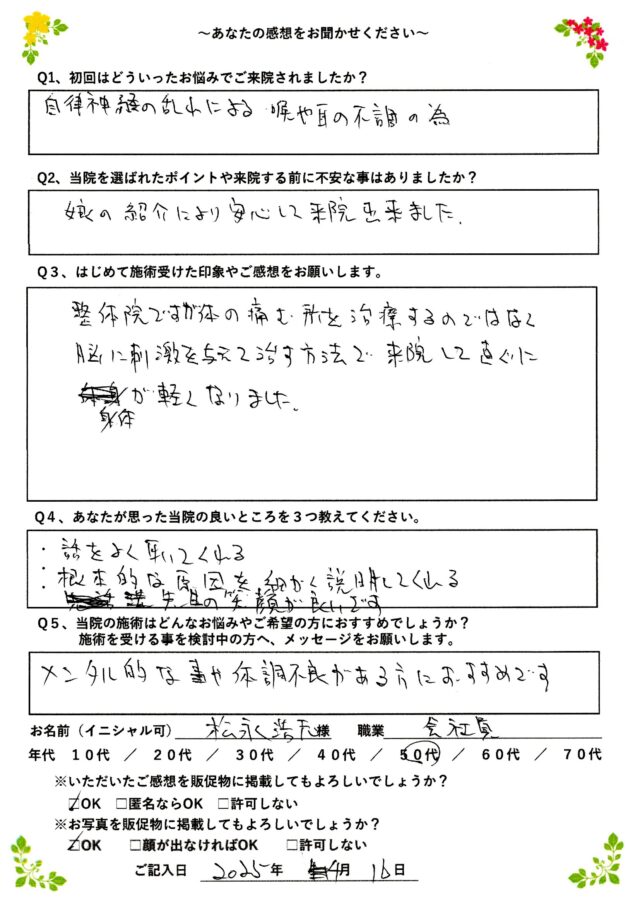 ～あなたの感想をお聞かせください～
Q1、初回はどういったお悩みでご来院されましたか？
自律神経の乱れによる 喉や耳の不調の為
Q2、当院を選ばれたポイントや来院する前に不安な事はありましたか？
娘の紹介により安心して来院出来ました。
Q３、はじめて施術受けた印象やご感想をお願いします。
整体院ですが体の痛む所を治療するのではなく
脳に刺激を与えて治す方法で来院して直ぐに
が軽くなりました。
身体
Q４、あなたが思った当院の良いところを３つ教えてください。
・話をよく聞いてくれる
・根本的な原因を細かく説明してくれる
・先生の笑顔が良いです
Q５、当院の施術はどんなお悩みやご希望の方におすすめでしょうか？
施術を受ける事を検討中の方へ、メッセージをお願いします。
メンタル的な事や体調不良がある方におすすめです
お名前（イニシャル可） 松永 様 職業 会社員
年代 １０代 ／ ２０代 ／ ３０代 ／ ４０代 ／ ５０代 ／ ６０代 ／ ７０代
※いただいたご感想を販促物に掲載してもよろしいでしょうか？
☑OK □匿名ならOK □許可しない
※お写真を販促物に掲載してもよろしいでしょうか？
☑OK □顔が出なければOK □許可しない
ご記入日 2025年 4月 16日